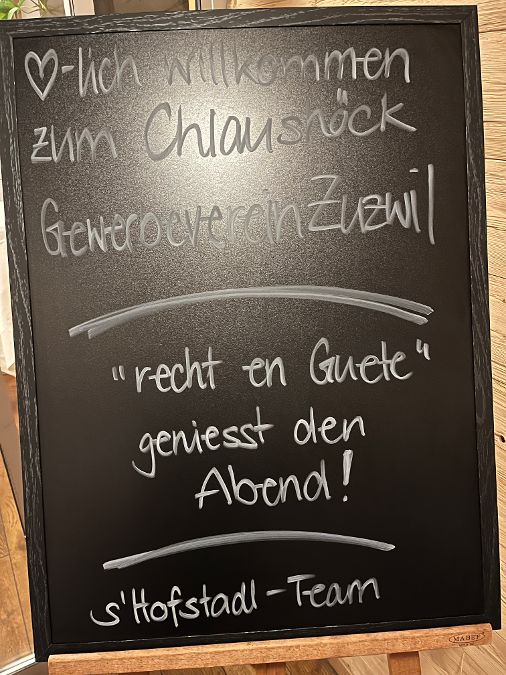 ♡-lich willkommen
zum Chlaushöck
Gewerbeverein Zuzwil
"recht en Guete"
geniesst den
Abend!
s'Hofstadl-Team
MABEF